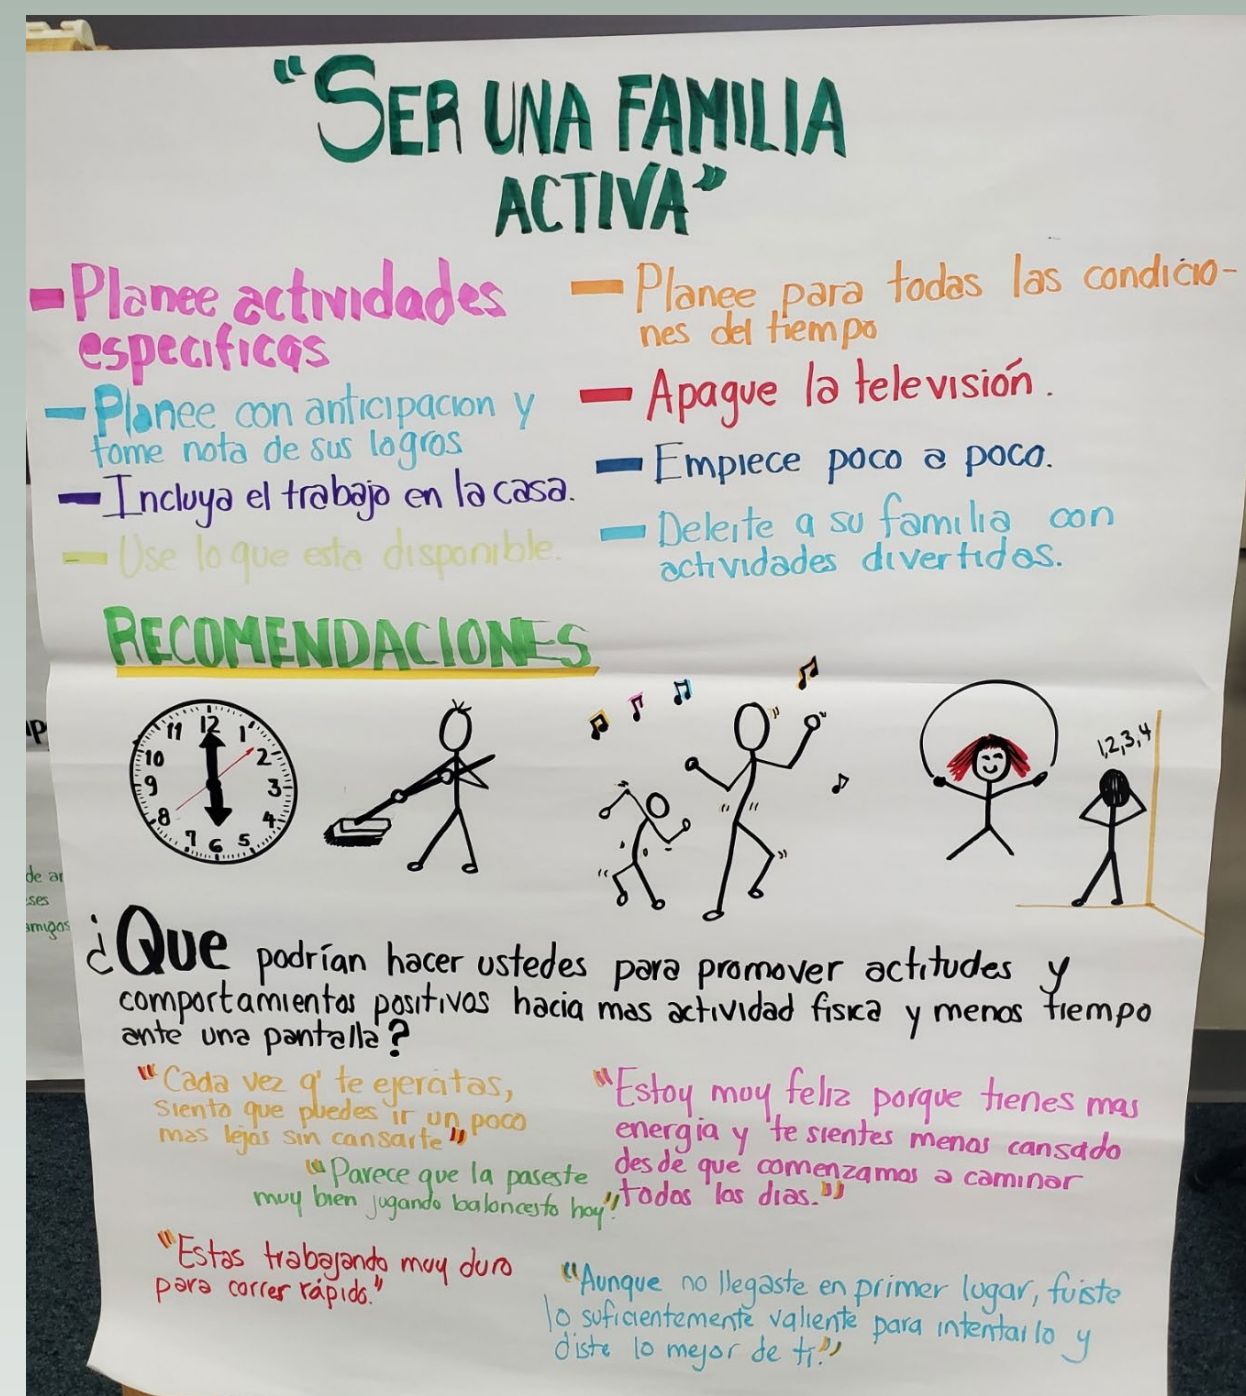 "SER UNA FAMILIA
ACTIVA"
-Planee actividades
especificas
-Planee con anticipacion y
tome nota de sus logros
-Incluya el trabajo en la casa.
-Use lo que esta disponible.
-Planee para todas las condicio-
nes del tiempo
-Apague la televisión.
-Empiece poco a poco.
-Deleite a su familia con
actividades divertidas.
RECOMENDACIONES
12
1
2
3
4
5
6
7
8
9
10
11
1,2,3,4
¿Que podrían hacer ustedes para promover actitudes y
comportamientos positivos hacia mas actividad física y menos tiempo
ante una pantalla?
"Cada vez q' te ejercitas,
siento que puedes ir un poco
mas lejos sin cansarte"
"Parece que la paseste
muy bien jugando baloncesto hoy".
"Estas trabajando muy duro
para correr rápido."
"Estoy muy feliz porque tienes mas
energia y te sientes menos cansado
desde que comenzamos a caminar
todos los dias."
"Aunque no llegaste en primer lugar, fuiste
lo suficientemente valiente para intentarlo y
diste lo mejor de ti."
de
ses
amigos